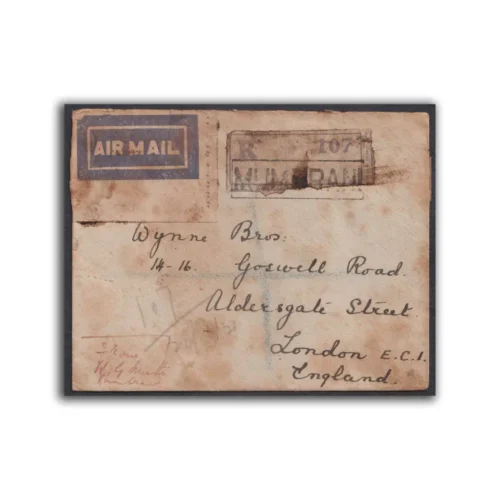 AIR MAIL
R 107
Wynne Bros:
14-16. Goswell Road.
Aldersgate Street.
London E.C.1.
England.
107
From